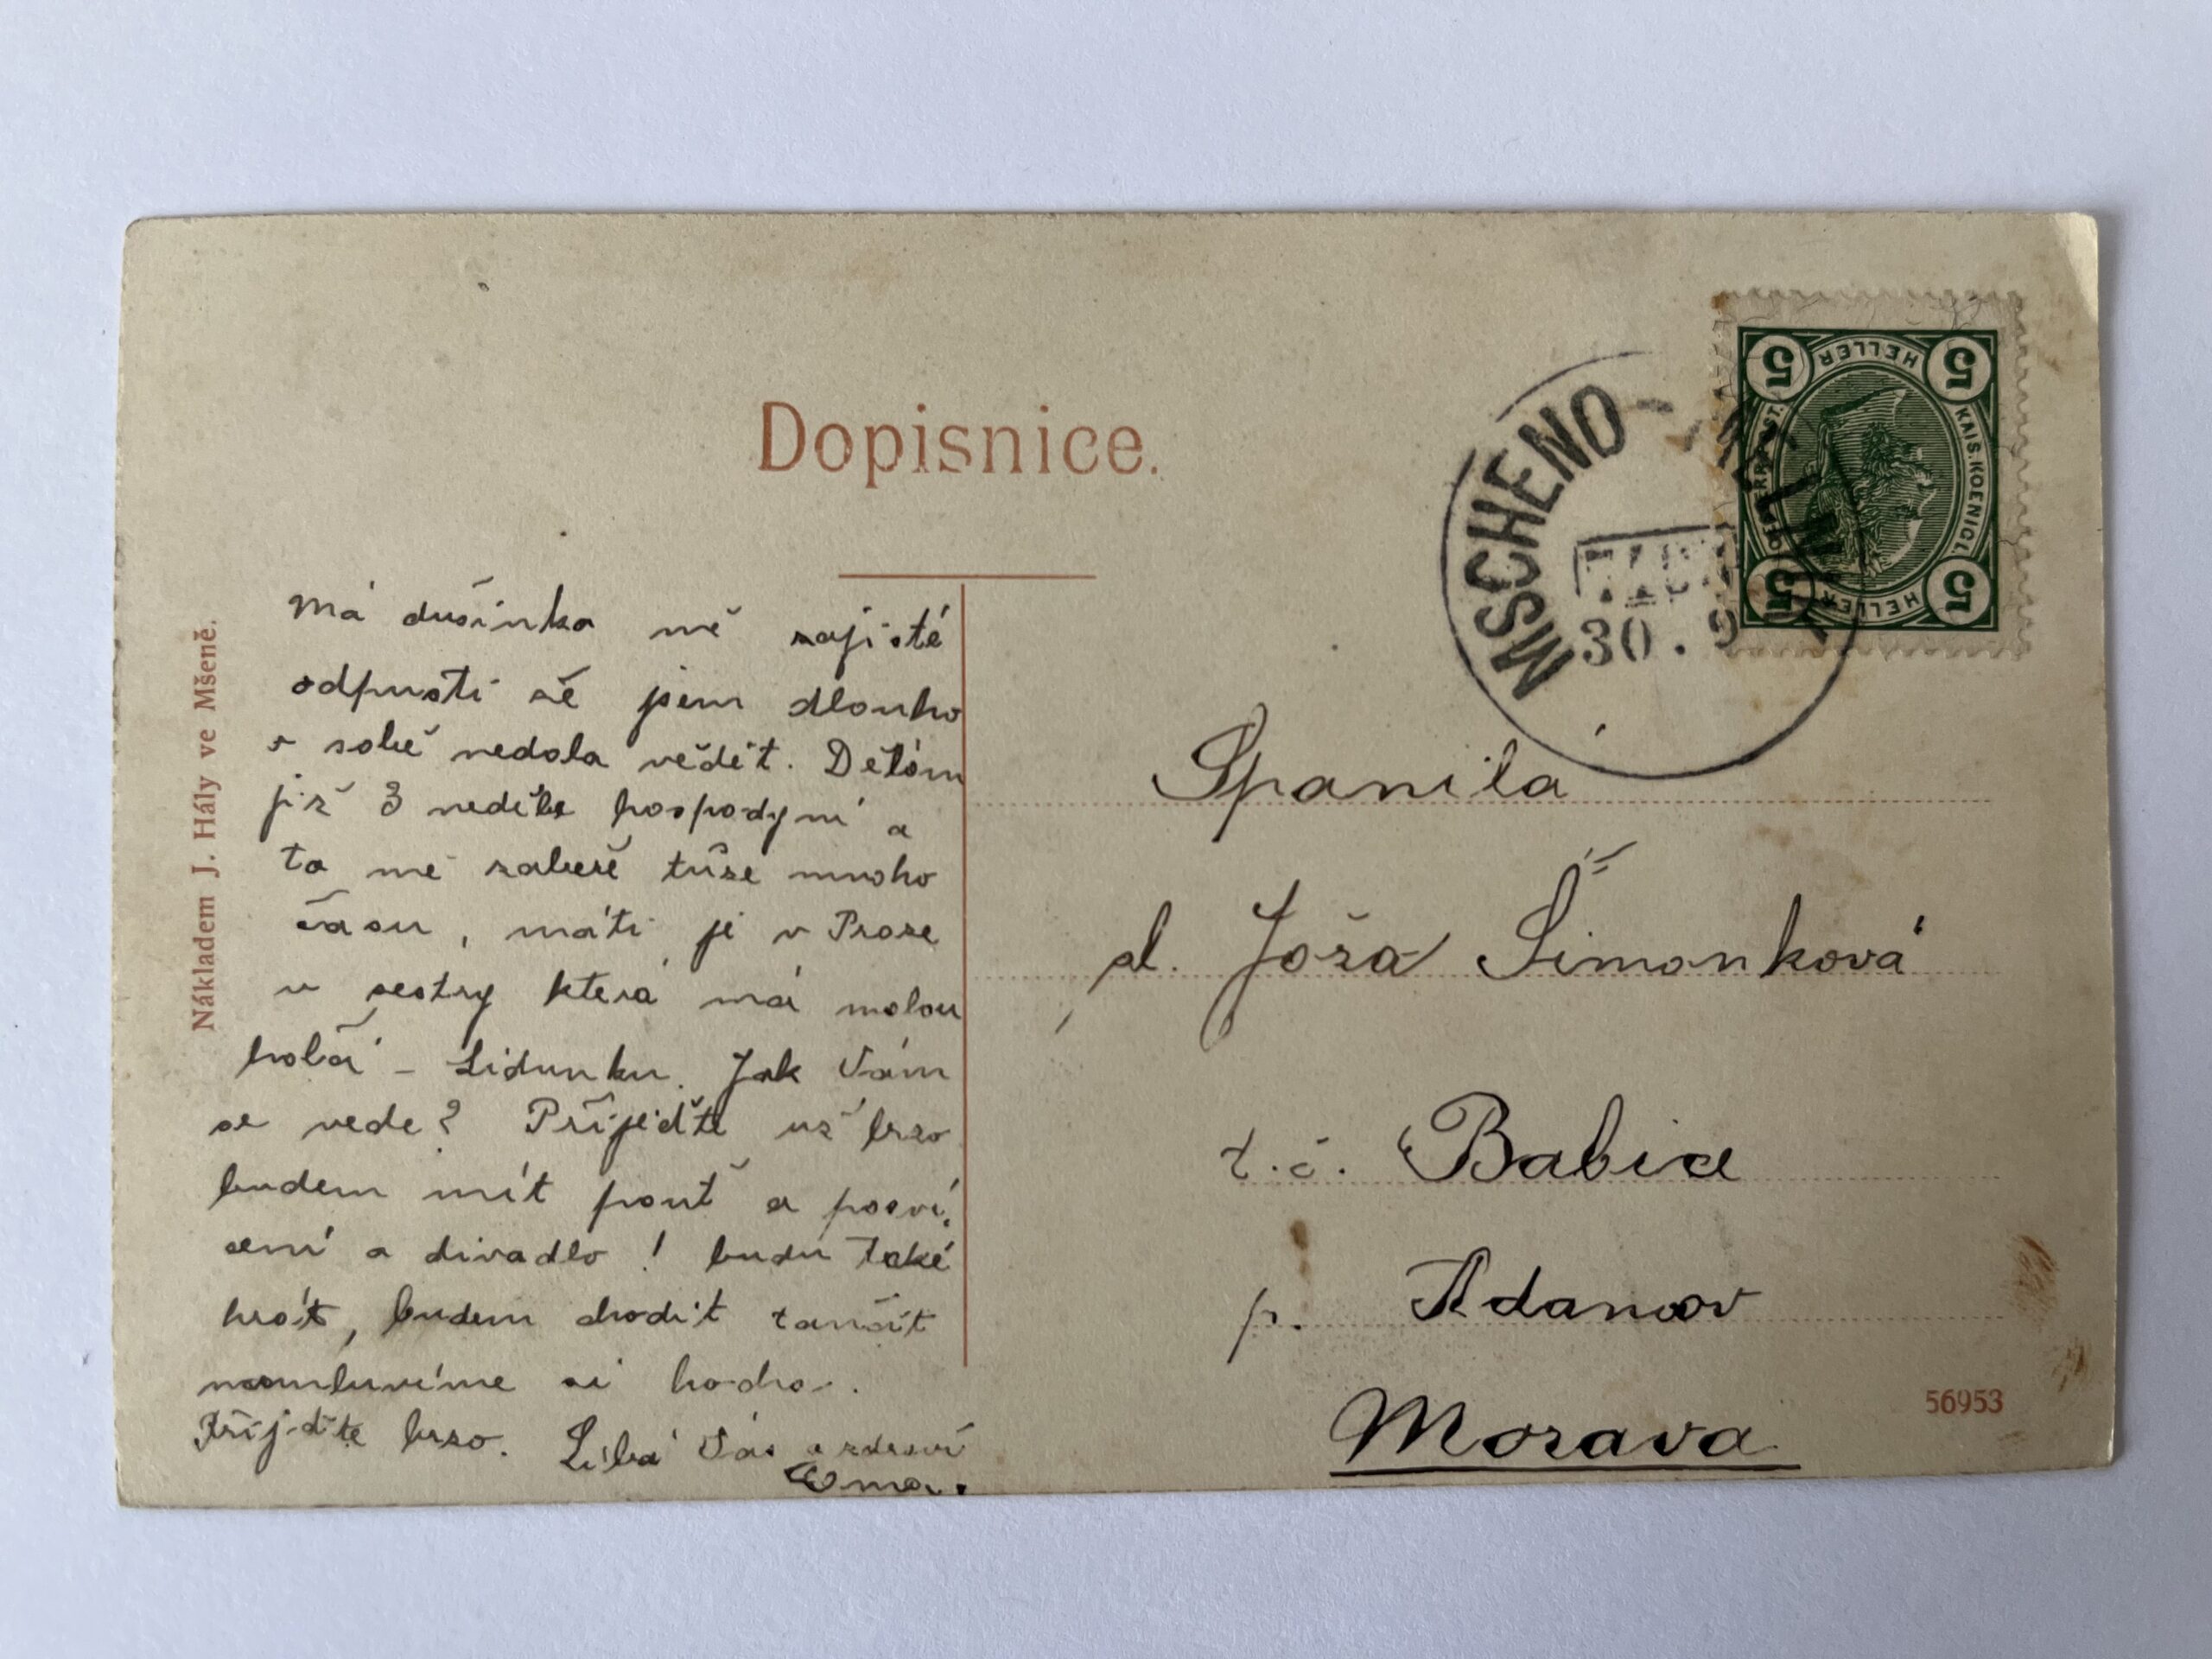 Dopisnice.
Nákladem J. Hály ve Mšeně.
Má dušinka mě zajisté
odpustí že jsem dlouho
o sobě nedala vědět. Dělám
již 3 neděle hospodyni a
to mě zabere tůze mnoho
času, máti je v Praze
u sestry která má malou
holčá - Lidunku. Jak Vám
se vede? Přijeďte už brzo
budem mít pouť a posví,
cení a divadlo! budu také
hrát, budem chodit tančit
namluvíme si hocha.
Přijeďte brzo. Líbá Vás a zdraví
Ema.
MSCHENO
30. 9
5 HELLER 5
KAIS. KOENIGL. OESTERR. POST.
5 HELLER 5
Spanilá
sl. Joža Šimonková
t. č. Babice
p. Adamov
Morava
56953